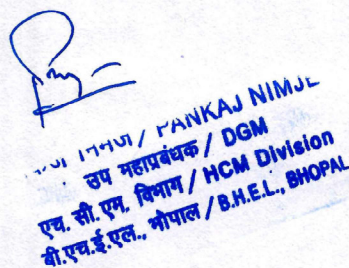 / PANKAJ NIMJE
उप महाप्रबंधक / DGM
एच. सी. एम. विभाग / HCM Division
बी.एच.ई.एल., भोपाल / B.H.E.L., BHOPAL